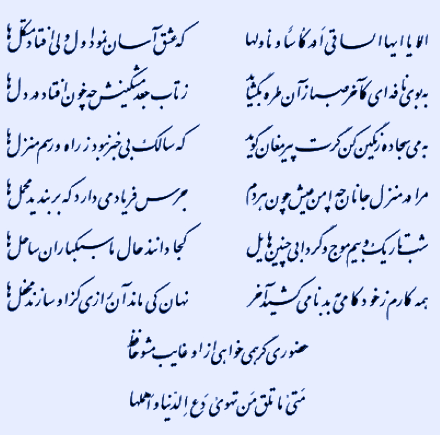 الا یا ایها الساقی ادر کاسا و ناولها که عشق آسان نمود اول ولی افتاد مشکل‌ها
به بوی نافه‌ای کآخر صبا زان طره بگشاید ز تاب جعد مشکینش چه خون افتاد در دل‌ها
به می سجاده رنگین کن گرت پیر مغان گوید که سالک بی‌خبر نبود ز راه و رسم منزل‌ها
مرا در منزل جانان چه امن عیش چون هر دم جرس فریاد می‌دارد که بربندید محمل‌ها
شب تاریک و بیم موج و گردابی چنین هایل کجا دانند حال ما سبکباران ساحل‌ها
همه کارم ز خود کامی به بدنامی کشید آخر نهان کی ماند آن رازی کز او سازند محفل‌ها
حضوری گر همی‌خواهی از او غایب مشو حافظ
متی ما تلق من تهوی دع الدنیا و اهملها